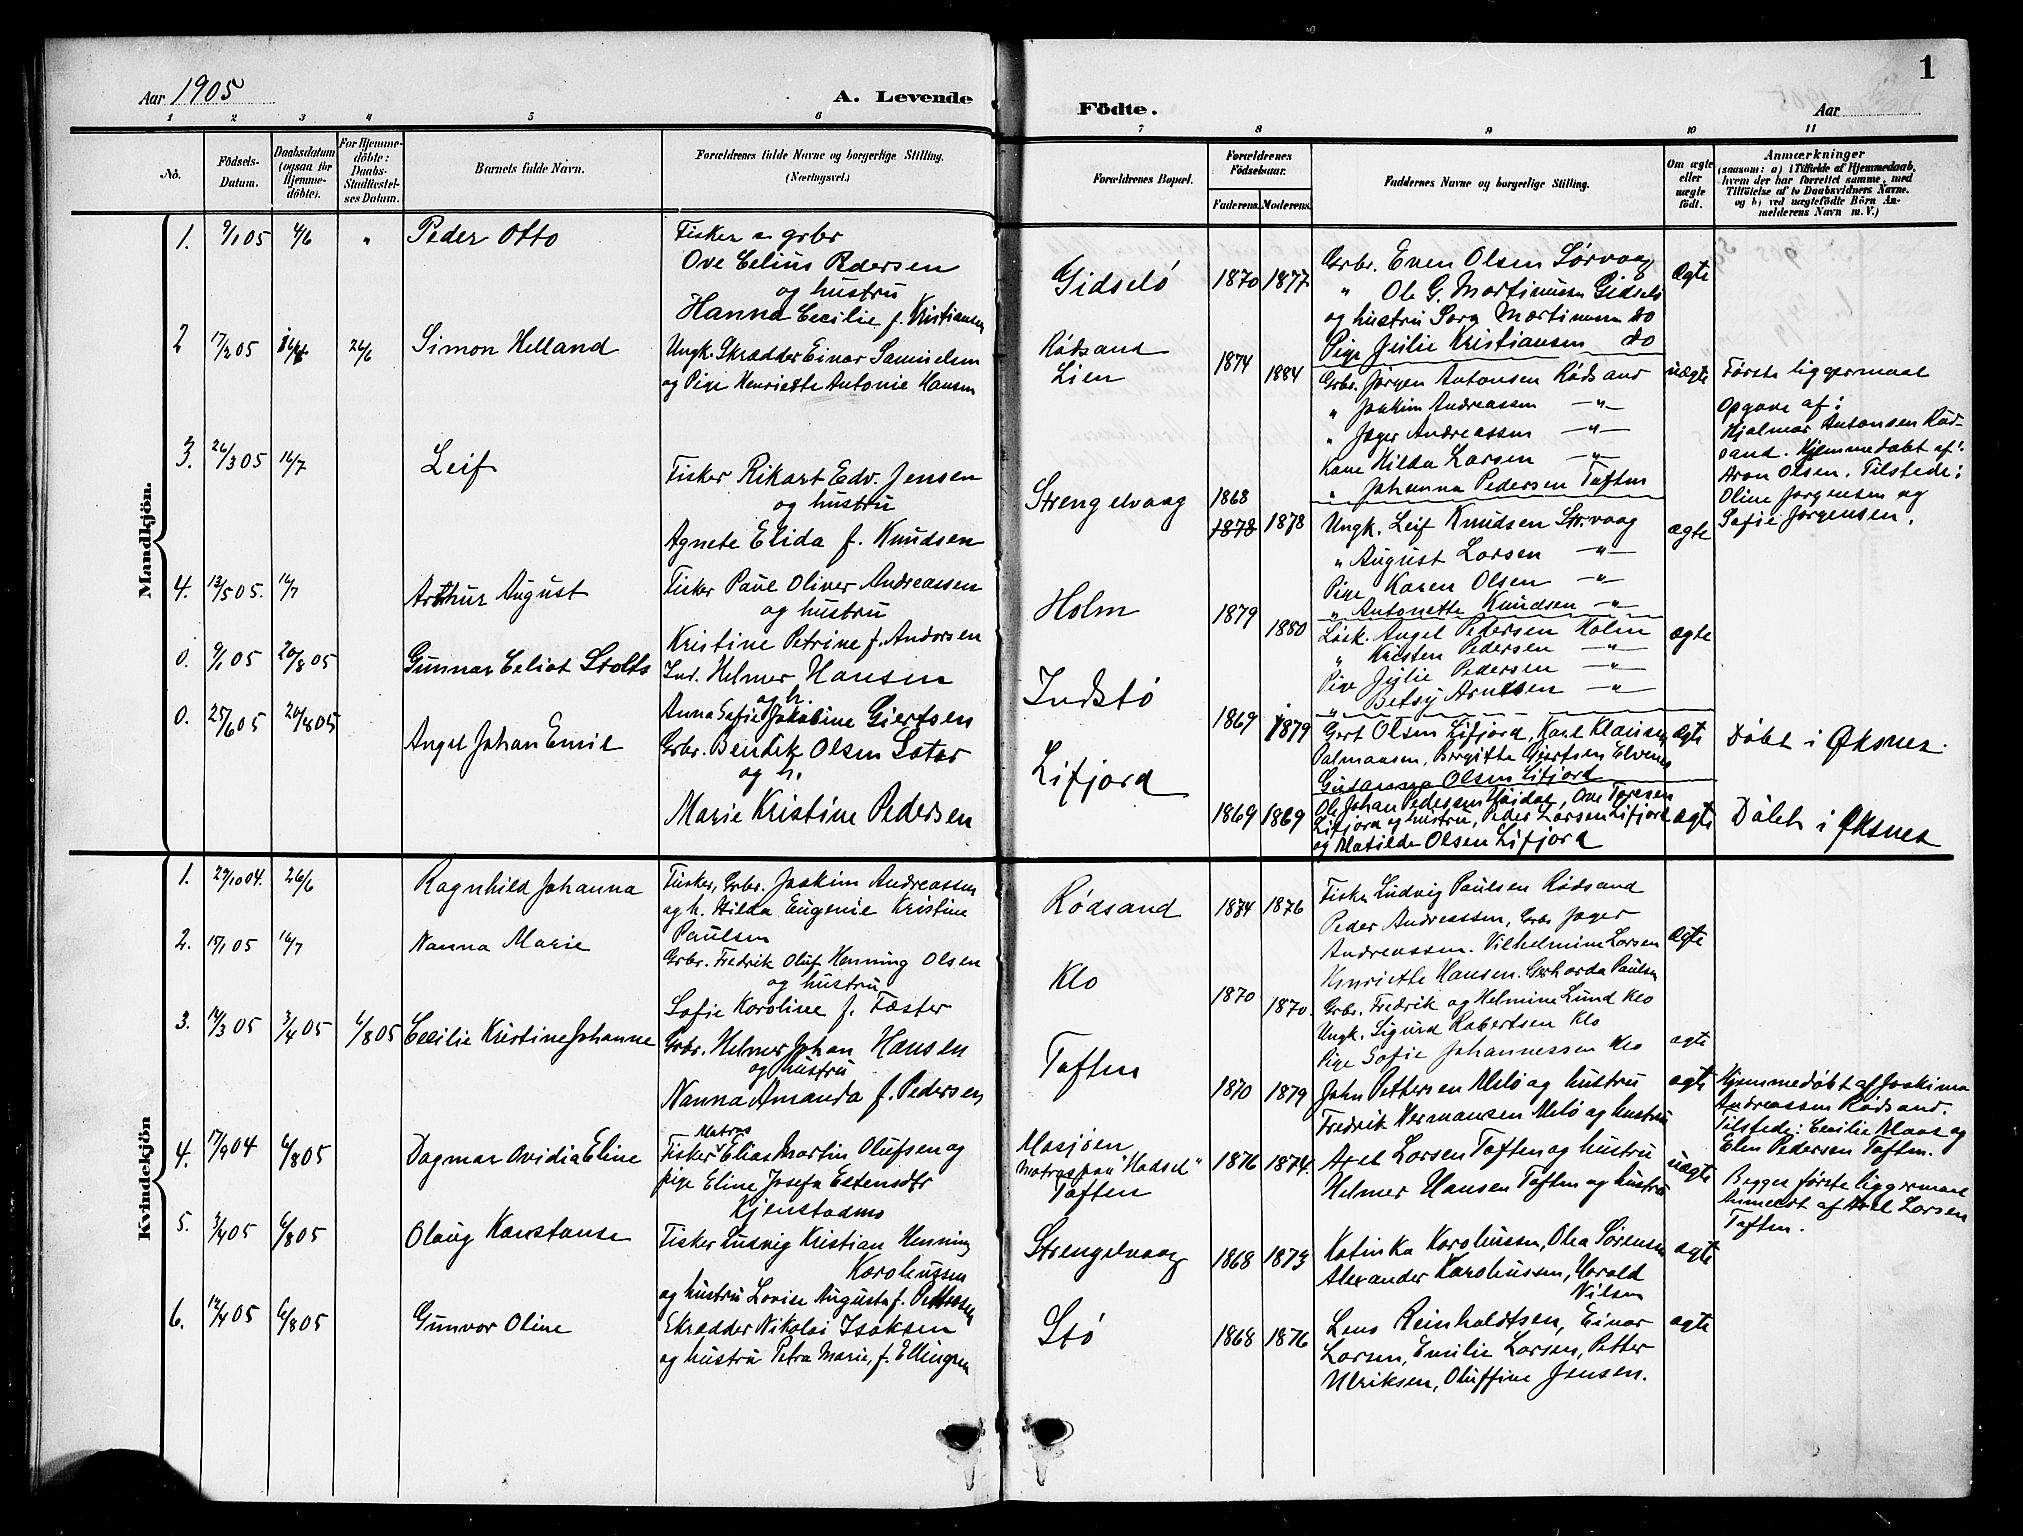 Aar 1905
A. Levende
Födte.
Aar
1
1 2 3 4 5 6 7 8 9 10 11
No.
Födsels-
Datum.
Daabsdatum
(ogsaa for
Hjemme-
döbte).
For Hjemme-
döbte:
Daabs-
Stadfæstel-
ses Datum.
Barnets fulde Navn.
Forældrenes fulde Navne og borgerlige Stilling.
(Næringsvei.)
Forældrenes Bopæl.
Forældrenes
Födselsaar.
Faderens. Moderens.
Faddernes Navne og borgerlige Stilling.
Om ægte
eller
uægte
födt.
Anmærkninger
(saasom: a) i Tilfælde af Hjemmedaab,
hvem der har forrettet samme, med
Tilföielse af to Daabsvidners Navne,
og b) ved uægtefödte Börn An-
melderens Navn m. V.)
Mandkjön.
1. 9/1 05 4/6 " Peder Otto
Fisker & grbr
Ove Celius Pedersen
og hustru
Hanna Cecilie f. Kristiansen
Gidselö 1870 1877
Grbr. Even Olsen Sörvaag
" Ole G. Martinusen Gidselö
og hustru Sara Martinusen do
Pige Julie Kristiansen do
Ægte
2 17/2 05 26/6 Simon Helland
Ungk. Skrædder Einar Samuelsen
og Pige Henriette Antonie Hansen
Rödsand
Lien
1874 1884
Grbr. Jörgen Antonsen Rödsand
" Joakim Andreassen —"—
" Jæger Andreassen —"—
Kone Hilda Larsen —"—
" Johanna Pedersen Taften
uægte
Første liggermaal
Opgave af:
Hjalmar Antonsen Röd-
sand. Hjemmedøbt af:
Aron Olsen. Tilstede:
Oline Jørgensen og
Sofie Jørgensen.
3. 26/3 05 16/7 Leif
Fisker Rikart Edv. Jensen
og hustru
Agnete Elida f. Knudsen
Strengelvaag 1868
1878 1878
Ungk. Leif Knudsen Str.vaag
" August Larsen —"—
Pige Karen Olsen —"—
" Antonette Knudsen —"—
ægte
4. 13/5 05. 16/7 Arthur August
Fisker Paul Oliver Andreassen
og hustru
Kristine Petrine f. Andorsen
Holm 1879 1880
Løsk. Angel Pedersen Holm
" Kristen Pedersen —"—
Pige Julie Pedersen —"—
" Betsy Arntsen —"—
ægte
0. 9/1 05 20/8 05 Gunnar Celiot Stolts
Ind. Helmer Hansen
og h.
Anna Sofie Jakobine Giertsen
Indstö 1869 1879
Gert Olsen Lifjord, Karl Klausen
Palmansen, Birgitte Gjertsen Elvenes
Gusanna Olsen Lifjord
ægte
Döbt i Øksnes.
0. 25/6 05 20/8 05 Angel Johan Emil
Grbr. Bendik Olsen Sæter
og h.
Marie Kristine Pedersen
Lifjord 1869 1869
Ole Johan Pedersen Höidal, Ove Toresen
Lifjord og hustru, Peder Larsen Lifjord
og Matilde Olsen Lifjord
ægte
Döbt i Øksnes
Kvindekjön
1. 29/10 04. 26/6 Ragnhild Johanna
Fisker, Grbr. Joakim Andreassen
og h. Hilda Eugenie Kristine
Paulsen
Rödsand 1874 1876
Fisker Ludvig Paulsen Rödsand
Peder Andreassen, Grbr Jæger
Andreassen. Vilhelmine Larsen
Henriette Hansen. Gerharda Paulsen
Ægte
2. 17/1 05 16/7 Nanna Marie
Grbr. Fredrik Oluf Henning Olsen
og hustru
Sofie Karoline f. Fæster
Klo 1870 1870.
Grbr. Fredrik og Helmine Lund Klo
Ungk. Sigurd Robertsen Klo
Pige Sofie Johannessen Klo
ægte
3. 14/3 05 3/4 05 6/8 05 Cecilie Kristine Johanne
Grbr. Helmer Johan Hansen
og hustru
Nanna Amanda f. Pedersen
Taften 1870 1879
John Pettersen Melö og hustru
Fredrik Hermansen Melö og hustru
ægte
Hjemmedöbt af Joakima
Andreassen Rödsand.
Tilstede: Cecilie Maas og
Elen Pedersen Taften.
4. 17/9 04 6/8 05 Dagmar Ovidia Eline
Matros
Fisker Elias Martin Olufsen og
pige Eline Josefa Estensdtr
Kjenstadmo
Mosjøen
Matros paa "Hadsel"
Taften
1876 1874.
Axel Larsen Taften og hustru
Helmer Hansen Taften og hustru
uægte
Begges første liggermaal
Anmeldt af Axel Larsen
Taften.
5. 3/4 05 6/8 05 Olaug Konstanse
Fisker Ludvig Kristian Henning
Karoliussen
og hustru Lovise Augusta f. Pettersen
Strengelvaag 1868 1873
Katinka Karoliussen, Olea Sörensen
Alexander Karoliussen, Harald
Nilsen
ægte
6. 14/4 05 6/8 05 Gunvor Oline
Skrædder Nikolai Isaksen
og hustru Petra Marie, f. Ellingsen
Stö 1868 1876
Lens Reinholdtsen, Einar
Larsen, Emilie Larsen, Petter
Ulriksen, Oluffine Jensen.
ægte